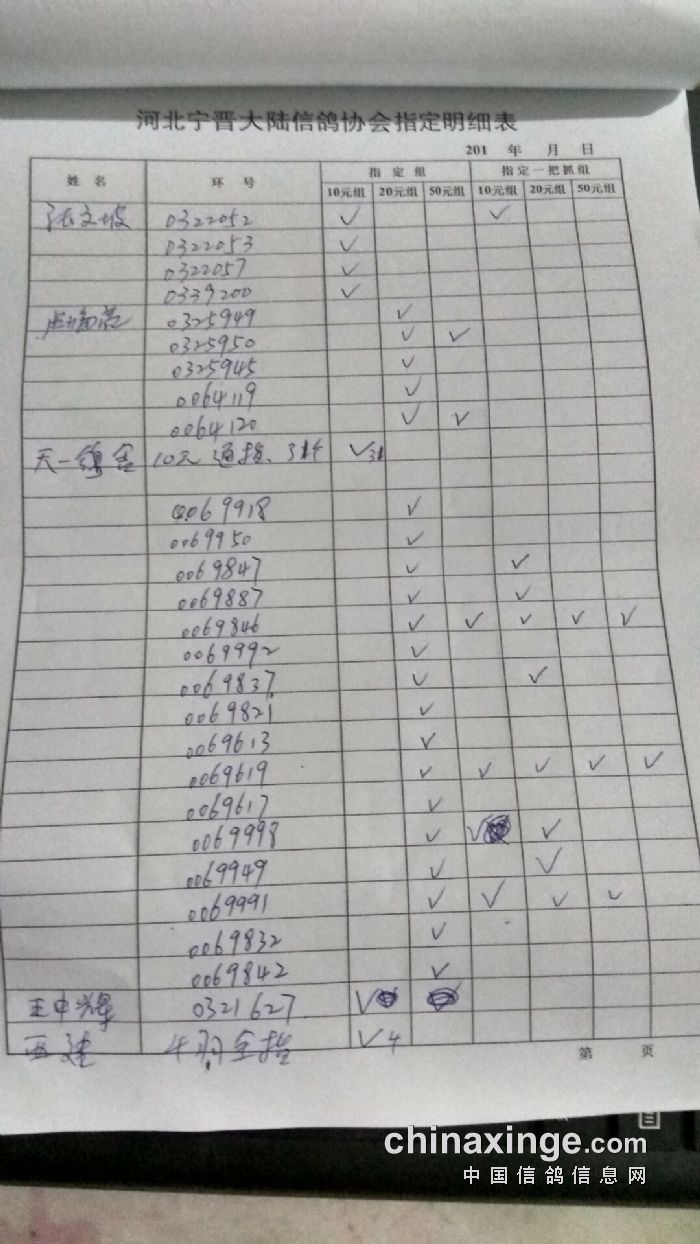 河北宁晋大陆信鸽协会指定明细表
201 年 月 日
姓 名 环 号 指 定 组 指定一把抓组
10元组 20元组 50元组 10元组 20元组 50元组
张文坡 0322052 ✓ ✓
0322053 ✓
0322057 ✓
0339200 ✓
0325949 ✓
0325950 ✓ ✓
0325945 ✓
0064119 ✓
0064120 ✓ ✓
天一鸽舍 10元 通指、 ✓31
0069918 ✓
0069950 ✓
0069847 ✓ ✓
0069887 ✓ ✓
0069846 ✓ ✓ ✓ ✓ ✓
0069992 ✓
0069837 ✓ ✓
0069821 ✓
0069613 ✓
0069619 ✓ ✓ ✓ ✓ ✓
0069617 ✓
0069998 ✓ ✓ ✓
0069949 ✓ ✓
0069991 ✓ ✓ ✓ ✓
0069832 ✓
0069842 ✓
王中辉 0321627 ✓
西建 4羽全指 ✓4
第 页
chinaxinge.com
中国信鸽信息网